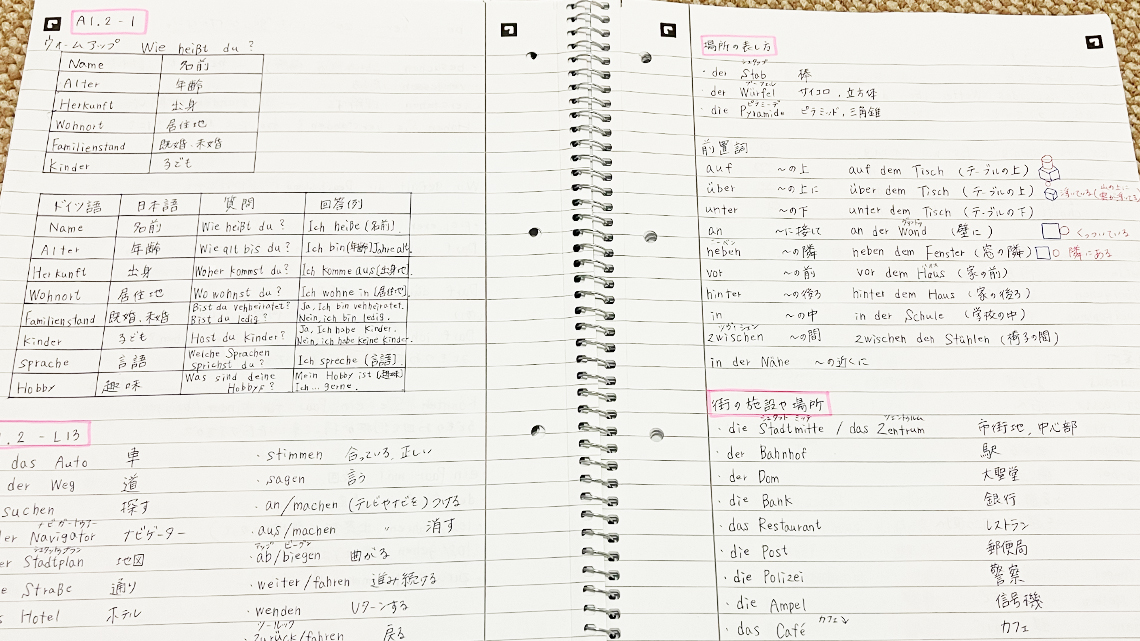 A1.2-1
ウォームアップ Wie heißt du?
Name 名前
Alter 年齢
Herkunft 出身
Wohnort 居住地
Familienstand 既婚・未婚
Kinder 子ども
ドイツ語 日本語 質問 回答例
Name 名前 Wie heißt du? Ich heiße (名前).
Alter 年齢 Wie alt bis du? Ich bin (年齢) Jahre alt.
Herkunft 出身 Woher kommst du? Ich komme aus (出身地).
Wohnort 居住地 Wo wohnst du? Ich wohne in (居住地).
Familienstand 既婚・未婚 Bist du vehheiratet? Ja, Ich bin vehheiratet.
Bist du ledig? Nein, ich bin ledig.
Kinder 子ども Hast du Kinder? Ja, Ich habe Kinder.
Nein, ich habe keine Kinder.
Sprache 言語 Welche Sprachen sprichst du? Ich spreche (言語).
Hobby 趣味 Was sind deine Hobbys? Mein Hobby ist (趣味)
Ich... gerne.
1.2-L13
das Auto 車
der Weg 道
suchen 探す
Navigator ナビゲーター
Stadtplan 地図
Straße 通り
Hotel ホテル
・stimmen 合っている、正しい
・sagen 言う
・an/machen (テレビやナビを)つける
・aus/machen 〃 消す
・ab/biegen 曲がる
・weiter/fahren 進み続ける
・wenden Uターンする
・zurück/fahren 戻る
場所の表し方
・der Stab 棒
・der Würfel サイコロ、立方体
・die Pyramide ピラミッド、三角錐
前置詞
auf 〜の上 auf dem Tisch (テーブルの上)
über 〜の上に über dem Tisch (テーブルの上) 浮いている
unter 〜の下 unter dem Tisch (テーブルの下)
an 〜に接して an der Wand (壁に) くっついている
neben 〜の隣 neben dem Fenster (窓の隣) 隣にある
vor 〜の前 vor dem Haus (家の前)
hinter 〜の後ろ hinter dem Haus (家の後ろ)
in 〜の中 in der Schule (学校の中)
zwischen 〜の間 zwischen den Stühlen (椅子の間)
in der Nähe 〜の近くに
街の施設や場所
・die Stadtmitte / das Zentrum 市街地、中心部
・der Bahnhof 駅
・der Dom 大聖堂
・die Bank 銀行
・das Restaurant レストラン
・die Post 郵便局
・die Polizei 警察
・die Ampel 信号機
・das Café カフェ